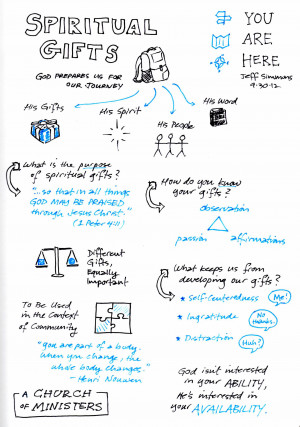 SPIRITUAL
GIFTS
YOU
ARE
HERE
Jeff Simmons
9.30.12
GOD PREPARES US FOR
OUR JOURNEY
His Gifts
His Spirit
His People
His Word
What is the purpose
of spiritual gifts?
"...so that in all things
GOD MAY BE PRAISED
through Jesus Christ."
(1 Peter 4:11)
Different
Gifts,
Equally
Important
To Be Used
in the Context
of Community
"you are part of a body.
when you change, the
whole body changes."
- Henri Nouwen
A CHURCH
OF
MINISTERS
How do you know
your gifts?
observation
passion
affirmations
What keeps us from
developing our gifts?
* Self-Centeredness
Me!
* Ingratitude
No
thanks.
* Distraction
Huh?
God isn't interested
in your ABILITY,
He's interested in
your AVAILABILITY.